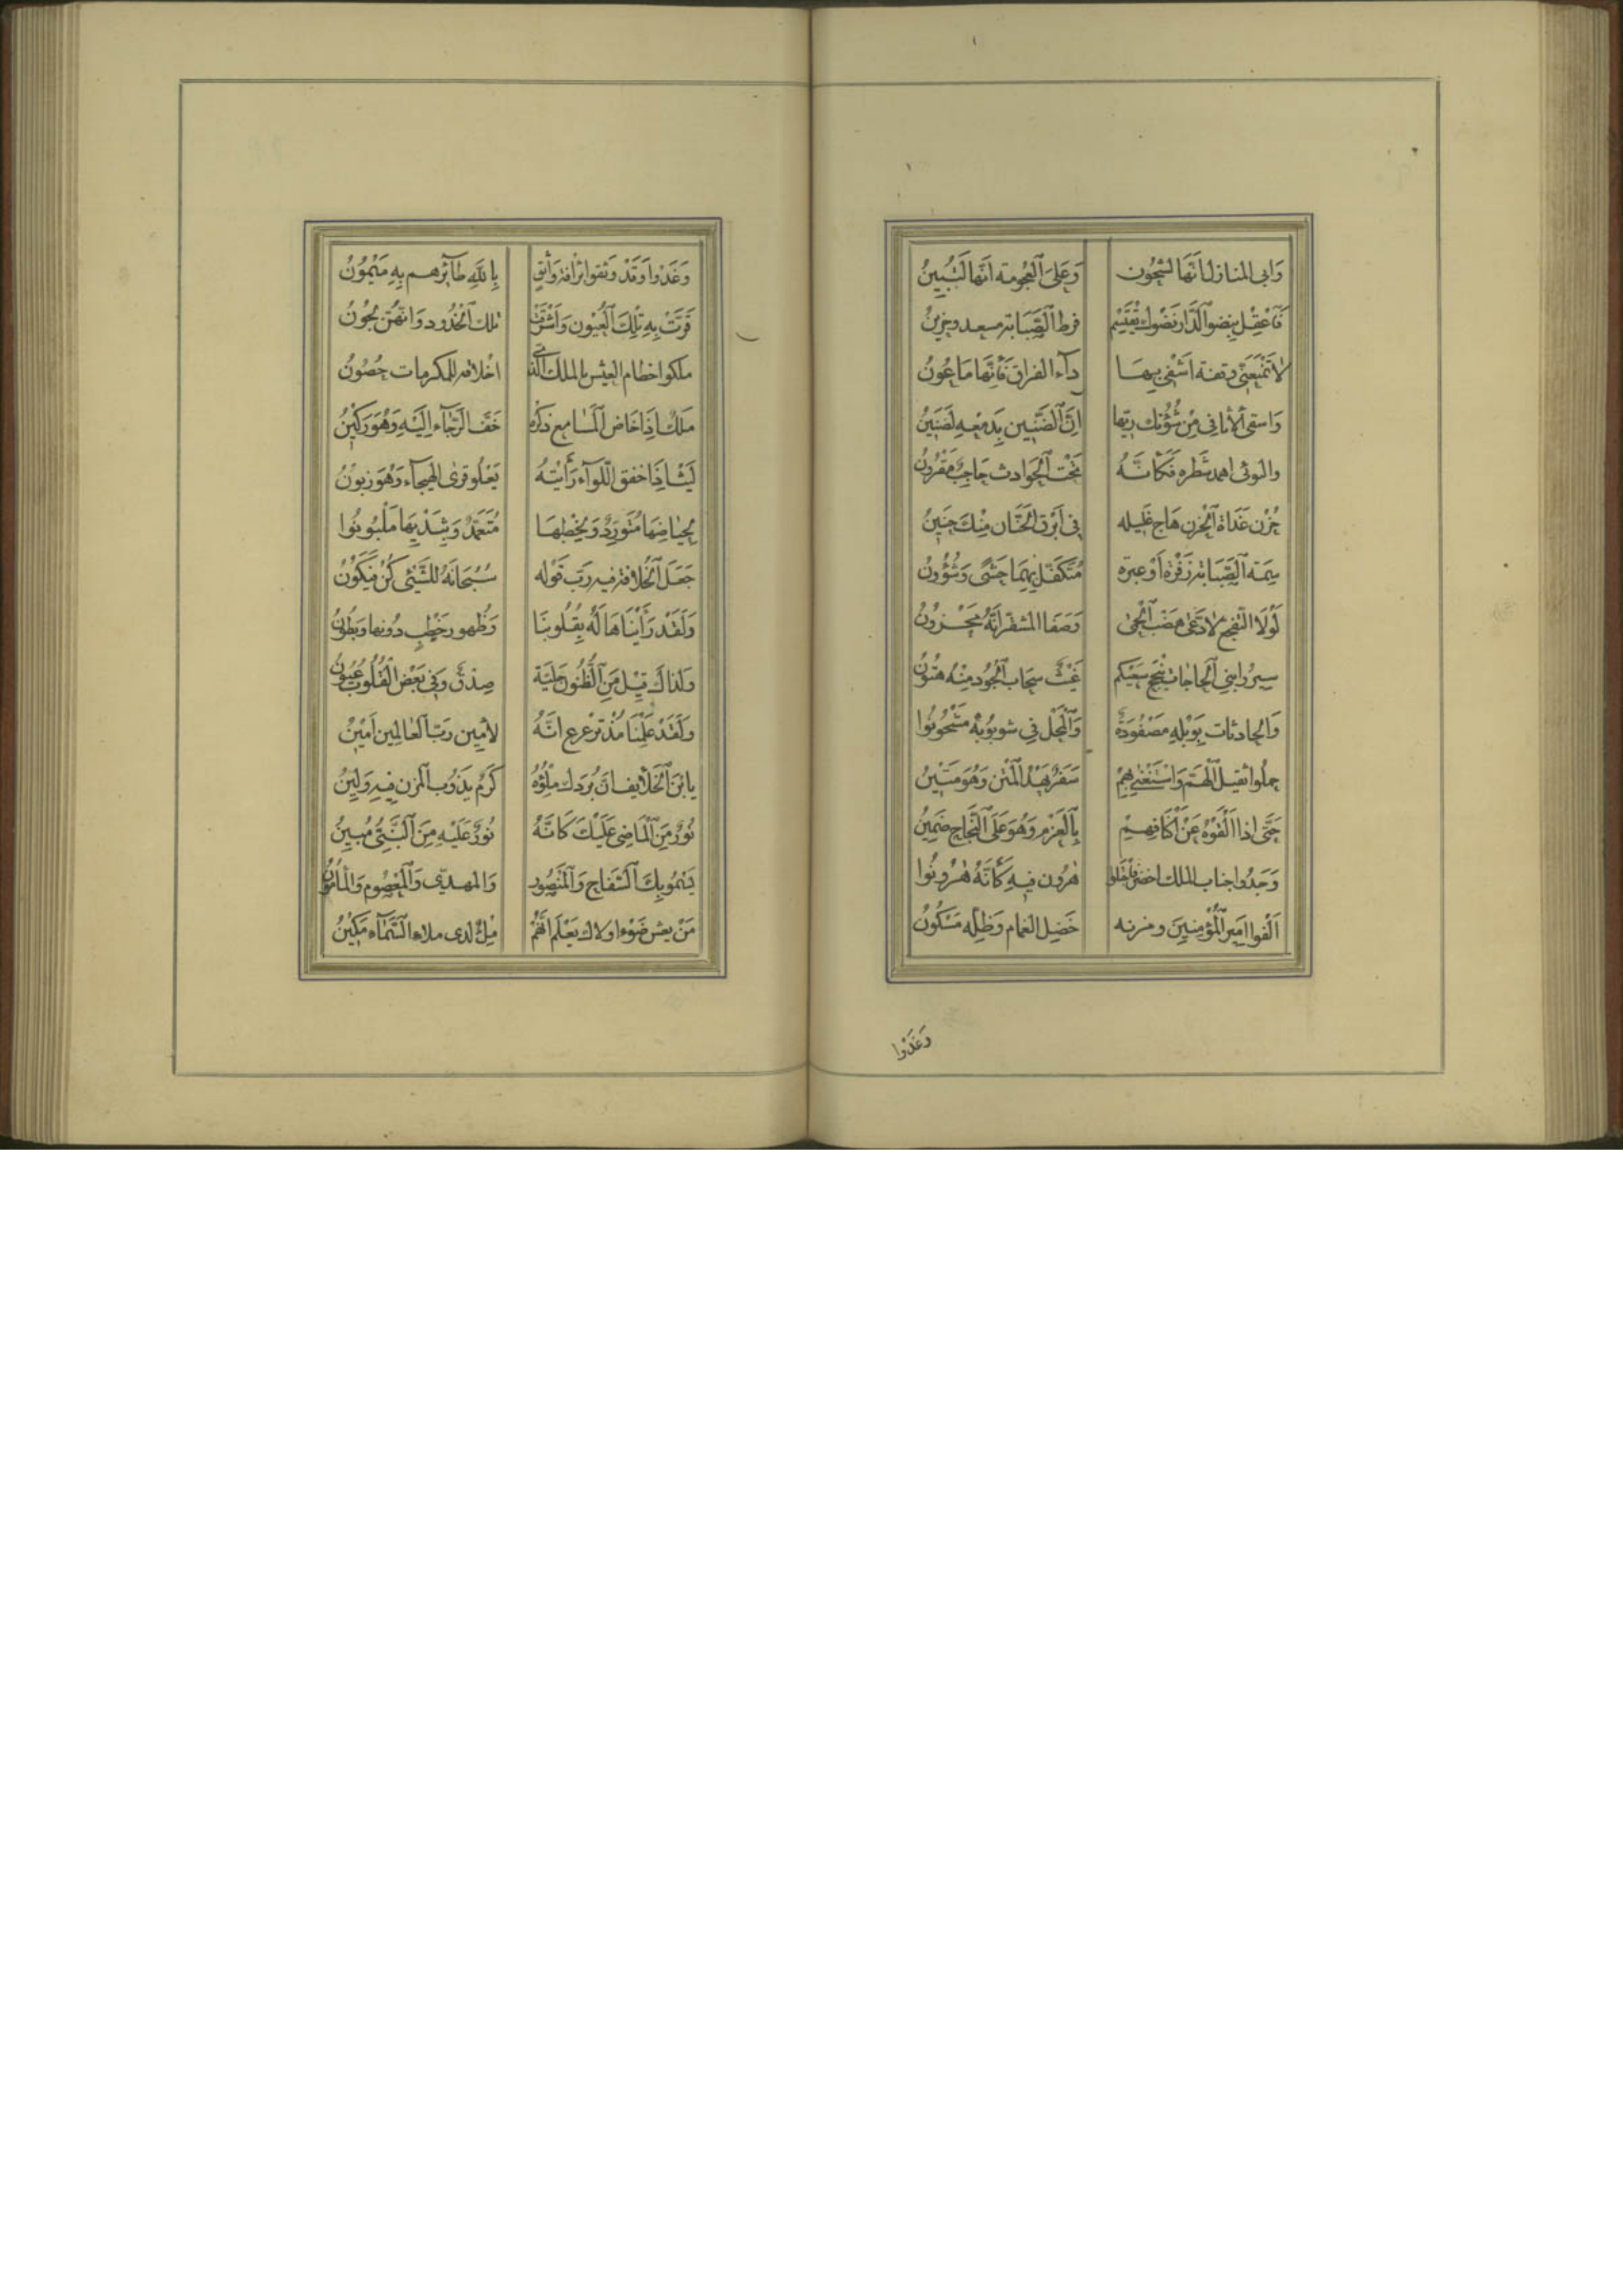 وَابى المنازل اَنَّهَا لشُجُون وَعَلىَ اَلعُجُومة اَنَّها لَتُبِينُ
فَاعْقِل بِنِضو اَلدَّار نَضْوك يَقْتَسِم فرط اَلصَّبَابة مسعد وحزينُ
لاَ تَمْنَعَنّى وقفة اَشْفى بِهَا دآء الفراق فَاِنَّهَا مَاعُونُ
وَاسقى اَلاثافى مِنْ شُؤُنك رِيّها اِنَّ اَلضَّنِين بِدَمْعِهِ لَضَنِينُ
والنوئى اهمد شَطره فَكَاَنَّهُ تَحْتَ اَلْحَوادث حَاجِبٌ مَقْرُونُ
حُزْن غَدَاة اَلحُزن هَاج غَليله فِى اَبْرَق اَلحَنَّان مِنْكَ حَنِينُ
سِمَة اَلصِّبَابة زَفْرَة اَوْ عبرَة مُتَكَفِّل بِهِمَا حَشًى وَشُؤُونُ
لَوْلاَ التَّفجع لاَدّعَى هضَب اَلْحِمى وَصَفَا المشقر اَنَّهُ مَحْزُونُ
سِيرُوا بَنِى اَلْحاجَات يُنْجِحْ سَعْيَكم غَيْث سحاب اَلْجُود مِنْهُ هتُونُ
وَالحادثات بِوَبْلِهِ مَصْفُودَة وَاَلمَحْل فِى شوبُوبِهِ مَسْجُونوُا
حملُوا ثقيل اَلْهَمّ وَاسْتَنْعٰى بِهِمْ سَفَرٌ يَهُدُّ اَلْمَتْن وَهُوَ مَتِينُ
حَتَّى اذا اَلْقَوْهُ عَنْ اَكتافهِمْ بِاَلعَزْمِ وَهُوَ عَلَى اَلنَّجَاحِ ضَمِينُ
وَجَدُوا جناب الملك اخضر فَاجْتَلوا هٰرُون فيهِ كَاَنَّهُ هٰرُونوُا
اَلْفوا اَمير اَلمُؤْمِنِينَ وحزبه خَضِل الغمام وَظِلُّهُ مَسْكُونُ
وَغَدَوْا
وَغَدَوْا وَقَدْ وَثقوا برأفة وَاثِقٍ بِاللّٰهِ طَآئِرُهم بِهِ مَيْمُونُ
قَرَّتْ بِهِ تِلْكَ اَلْعُيُون وَاَشْرَقَتْ تلك اَلخُدُود وَانهُّنّ لَجُونُ
ملكوا خطام العيش بالملك الذى اخْلاقه للمكرمات حُصُونُ
مَلكٌ اِذَا خَاض اَلمَسَامع ذكرُه خَفّ الرَّجَآء اِلَيْهِ وَهُوَ رَكِينُ
لَيْث اِذَا خَفق اَللّوَآء رَاَيْتهُ يَعْلُو قرى الهَيجآء وَهُوَ زبُونُ
لِحِيٰاضِهَا مُتَورّدٌ وَلِخِطْبهَا مُتَعَمِّدٌ وَبِثَدْيِهَا مَلْبُونوُا
جَعَلَ اَلْخِلافة فِيهِ رَبّ قَوْله سُبْحَانَهُ للشَّيْئى كُنْ فَيَكُونُ
وَلَقَدْ رَاَيْنَاهَا لَهُ بِقُلُوبنَا وَظُهور خَطْبٍ دُونها وَبطُونُ
وَلذاك قِيل مِنَ اَلظُّنُون جَلِيّة صِدْق وَفِى بَعْض اَلقُلُوب عُيُونُ
وَلَقَدْ عَلِمْنَا مُذْ تَرَعْرع اِنَّهُ لاَمِين رَبّ اَلعَالمين اَمِينُ
يابْنَ اَلْخَلاَيف انَّ بُردَك ملؤُهُ كَرَمٌ يَذُوب اَلمُزن فِيهِ وَلِينُ
نُورٌ مِنَ اَلْمَاضِى عَلَيْكَ كَاَنَّهُ نُورٌ عَلَيْهِ مِنَ اَلنَّبِىّ مُبِينُ
يَسْمُو بِكَ اَلسّفَاح وَاَلمَنْصُور وَالمهدىّ وَاَلمعصُوم وَالْمَأمُونُ
مَنْ يعش ضَوْءا ولاك يَعْلَم اَنَّهُمْ مَلأٌ لدى ملاء اَلسَّمَاء مَكِينُ